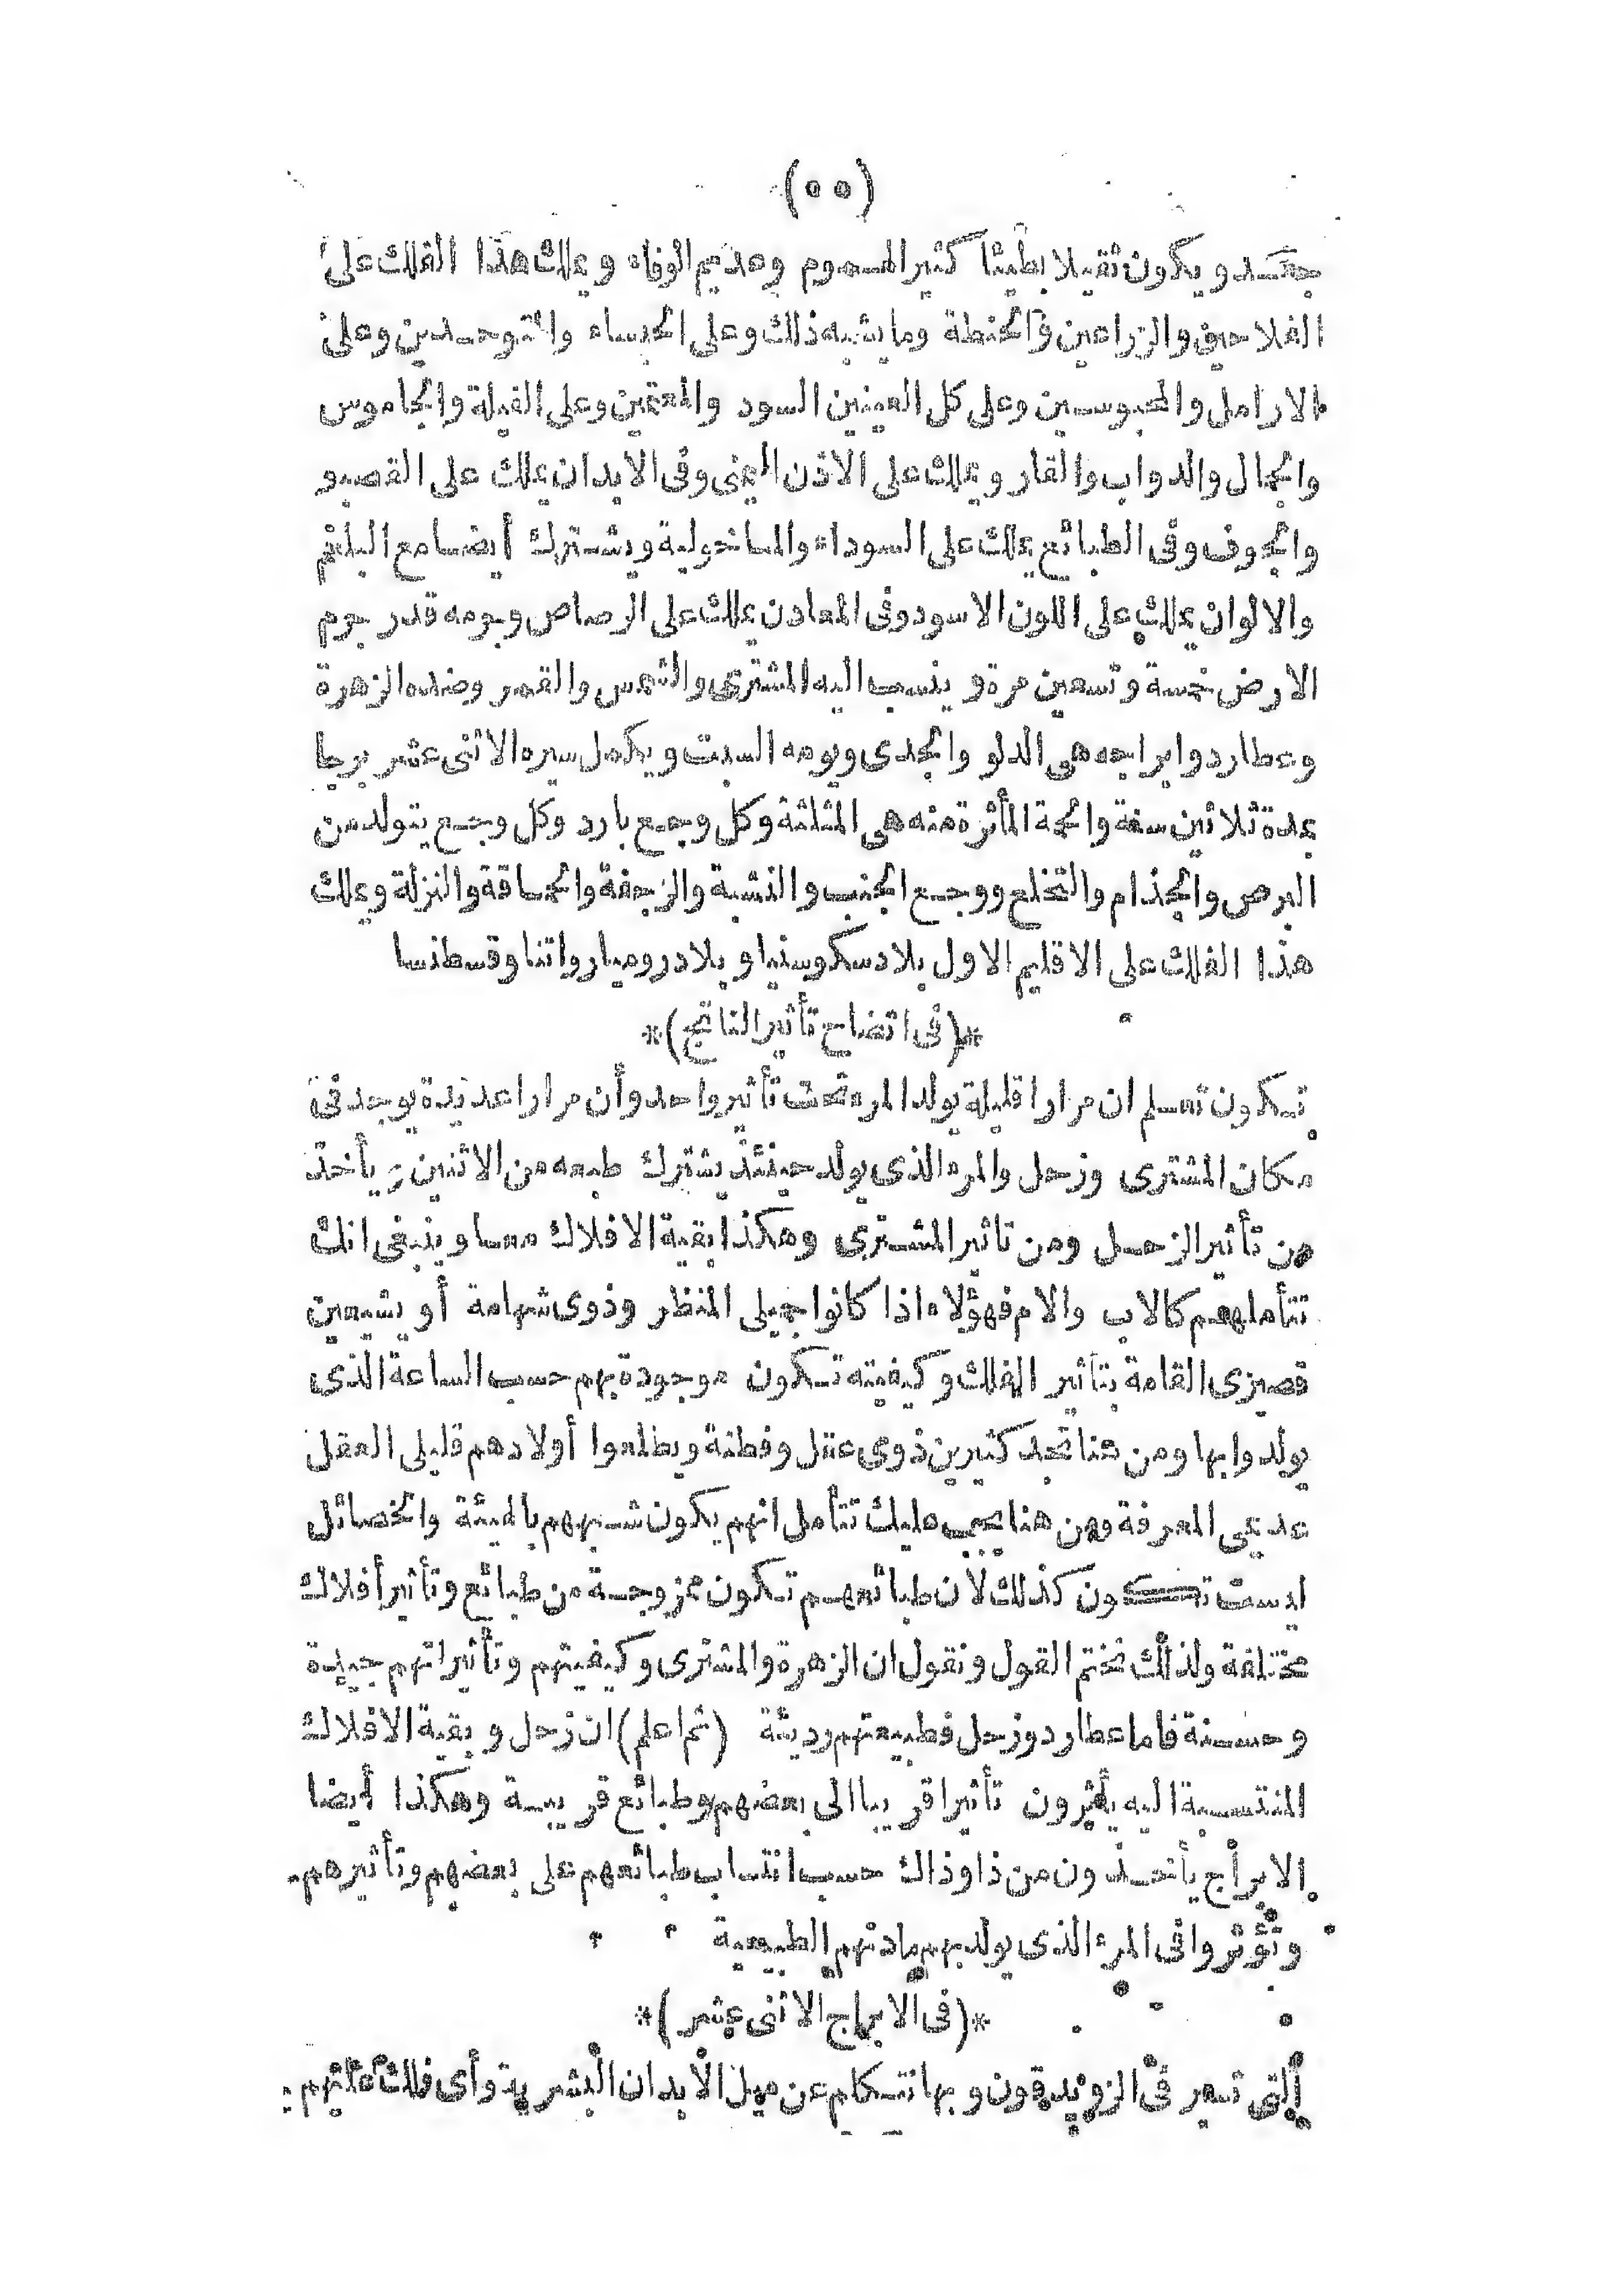 (٥٥)
جعد ويكون ثقيلا بطيئا كثير الهموم وعديم الوفاء ويملك هذا الفلك على
الفلاحين والزراعين والحنطة وما يشبه ذلك وعلى الحبساء والتوحدين وعلى
الارامل والمحبوسين وعلى كل العينين السود والمعتمين وعلى الفيلة والجاموس
والجمال والدواب والقار ويملك على الاذن اليمنى وفى الابدان يملك على القصبو
والجوف وفى الطبائع يملك على السوداء والمانخولية ويشترك أيضا مع البلغم
والالوان يملك على اللون الاسود وفى المعادن يملك على الرصاص وجرمه قدر جرم
الارض خمسة وتسعين مرة وينسب اليه المشترى والشمس والقمر وضده الزهرة
وعطارد وابراجه هى الدلو والجدى ويومه السبت ويكمل سيره الاثنى عشر برجا
بمدة ثلاثين سنة والحمة المأثرة منه هى المثلثة وكل وجع بارد وكل وجع يتولد من
البرص والجذام والتخلع ووجع الجنب والنشبة والرجفة والحماقة والنزلة ويملك
هذا الفلك على الاقليم الاول بلاد سكوسنيا وبلاد روميا رواتنا وقسطنسا
*(فى اتضاح تأثير الناتج)*
تكون تعلم ان مرارا قليلة يولد المرء تحت تأثير واحد وأن مرارا عديدة يوجد فى
مكان المشترى وزحل والمرء الذى يولد حينئذ يشترك طبعه من الاثنين ويأخذ
من تأثير الزحل ومن تاثير المشترى وهكذا بقية الافلاك معا وينبغى انك
تتأملهم كالاب والام فهؤلاء اذا كانوا جميلى المنظر وذوى شهامة أو بشيعين
قصيرى القامة بتأثير الفلك وكيفيته تكون موجودة بهم حسب الساعة الذى
يولدوا بها ومن هنا تجد كثيرين ذوى عقل وفطنة ويطلعوا أولادهم قليلى العقل
عديمى المعرفة ومن هنا يجب عليك تتأمل انهم يكون شبههم بالهيئة والخصائل
ليست تكون كذلك لأن طبائعهم تكون ممزوجة من طبائع وتأثير أفلاك
مختلفة ولذلك نختم القول ونقول ان الزهرة والمشترى وكيفيتهم وتأثيراتهم جيدة
وحسنة فاما عطارد وزحل فطبيعتهم رديئة (ثم اعلم) ان زحل وبقية الافلاك
المنتسبة اليه يأثرون تأثيرا قريبا الى بعضهم وطبائع قريبة وهكذا أيضا
الابراج يأخذون من ذا وذاك حسب انتساب طبائعهم على بعضهم وتأثيرهم
وتؤثروا فى المرء الذى يولد بهم مادتهم الطبيعية
*(فى الابراج الاثنى عشر)*
التى تسير فى الزونديقون وبها نتكلم عن ميل الابدان البشرية وأى فلك